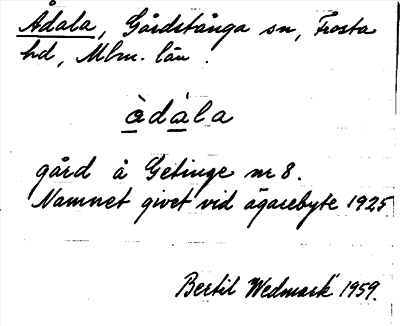 Ådala, Gårdstånga sn, Frosta
hd, Mlm. län.
àdàla
gård å Getinge nr 8.
Namnet givet vid ägarebyte 1925
Bertil Wedmark 1959.